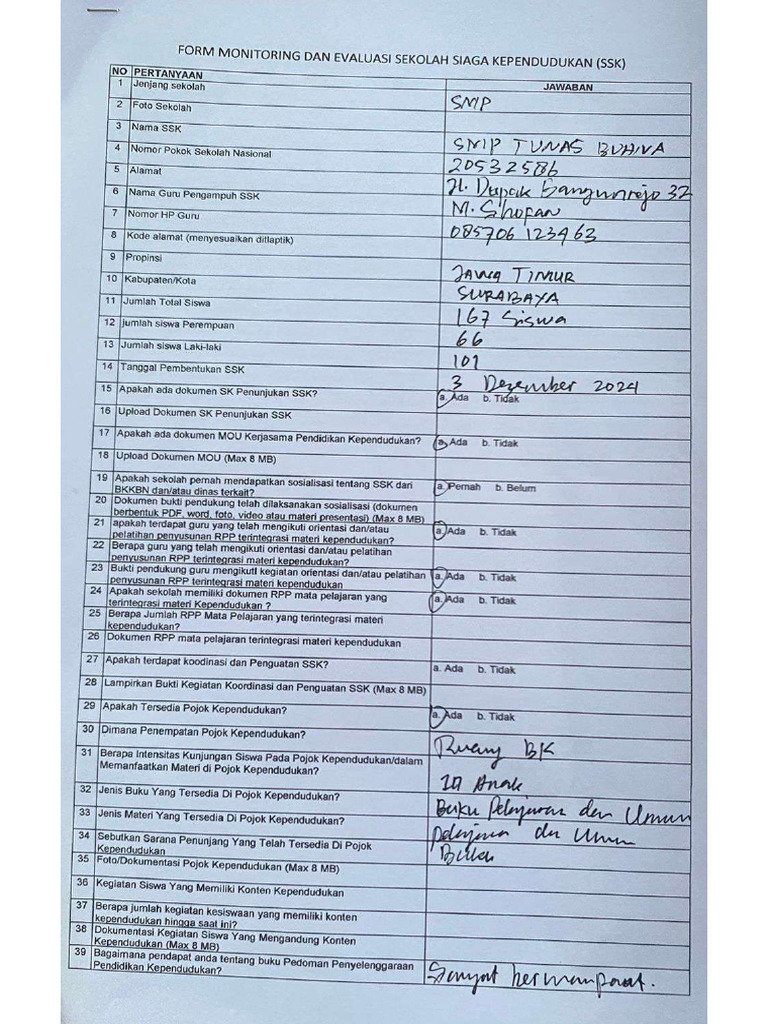 FORM MONITORING DAN EVALUASI SEKOLAH SIAGA KEPENDUDUKAN (SSK)
NO PERTANYAAN JAWABAN
1 Jenjang sekolah SMP
2 Foto Sekolah
3 Nama SSK SMP TUNAS BUANA
4 Nomor Pokok Sekolah Nasional 20532586
5 Alamat Jl. Dupak Bangunrejo 32
6 Nama Guru Pengampuh SSK M. Shofan
7 Nomor HP Guru 085706123463
8 Kode alamat (menyesuaikan ditlaptik)
9 Propinsi JAWA TIMUR
10 Kabupaten/Kota SURABAYA
11 Jumlah Total Siswa 167 Siswa
12 jumlah siswa Perempuan 66
13 Jumlah siswa Laki-laki 101
14 Tanggal Pembentukan SSK 3 Dezember 2024
15 Apakah ada dokumen SK Penunjukan SSK? a. Ada b. Tidak
16 Upload Dokumen SK Penunjukan SSK
17 Apakah ada dokumen MOU Kerjasama Pendidikan Kependudukan? a. Ada b. Tidak
18 Upload Dokumen MOU (Max 8 MB)
19 Apakah sekolah pernah mendapatkan sosialisasi tentang SSK dari a. Pernah b. Belum
BKKBN dan/atau dinas terkait?
20 Dokumen bukti pendukung telah dilaksanakan sosialisasi (dokumen
berbentuk PDF, word, foto, video atau materi presentasi) (Max 8 MB)
21 apakah terdapat guru yang telah mengikuti orientasi dan/atau a. Ada b. Tidak
pelatihan penyusunan RPP terintegrasi materi kependudukan?
22 Berapa guru yang telah mengikuti orientasi dan/atau pelatihan
penyusunan RPP terintegrasi materi kependudukan?
23 Bukti pendukung guru mengikuti kegiatan orientasi dan/atau pelatihan a. Ada b. Tidak
penyusunan RPP terintegrasi materi kependudukan
24 Apakah sekolah memiliki dokumen RPP mata pelajaran yang a. Ada b. Tidak
terintegrasi materi Kependudukan ?
25 Berapa Jumlah RPP Mata Pelajaran yang terintegrasi materi
kependudukan?
26 Dokumen RPP mata pelajaran terintegrasi materi kependudukan
27 Apakah terdapat koodinasi dan Penguatan SSK? a. Ada b. Tidak
28 Lampirkan Bukti Kegiatan Koordinasi dan Penguatan SSK (Max 8 MB)
29 Apakah Tersedia Pojok Kependudukan? a. Ada b. Tidak
30 Dimana Penempatan Pojok Kependudukan? Ruang BK
31 Berapa Intensitas Kunjungan Siswa Pada Pojok Kependudukan/dalam
Memanfaatkan Materi di Pojok Kependudukan? Anak
32 Jenis Buku Yang Tersedia Di Pojok Kependudukan? Buku Pelajaran dan Umum
33 Jenis Materi Yang Tersedia Di Pojok Kependudukan? pelajaran dan Umum
34 Sebutkan Sarana Penunjang Yang Telah Tersedia Di Pojok Buku
Kependudukan
35 Foto/Dokumentasi Pojok Kependudukan (Max 8 MB)
36 Kegiatan Siswa Yang Memiliki Konten Kependudukan
37 Berapa jumlah kegiatan kesiswaan yang memiliki konten
kependudukan hingga saat ini?
38 Dokumentasi Kegiatan Siswa Yang Mengandung Konten
Kependudukan (Max 8 MB)
39 Bagaimana pendapat anda tentang buku Pedoman Penyelenggaraan Sangat bermanpaat.
Pendidikan Kependudukan?